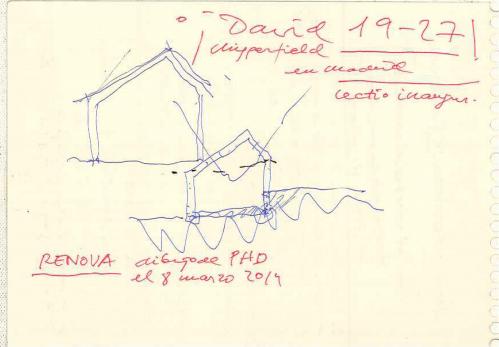 David 19-27
Chipperfield
en madrid
lectio inaugur.
RENOVA dibujo de PHD
el 8 marzo 2014